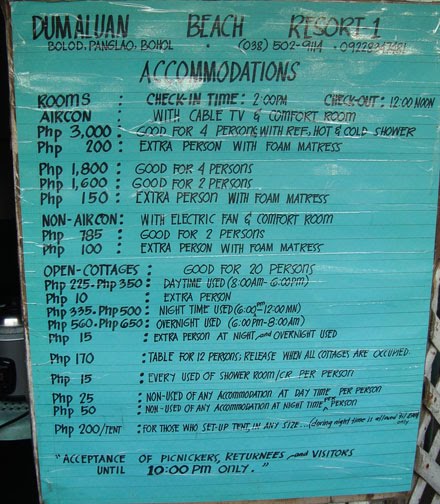 DUMALUAN BEACH RESORT 1
BOLOD, PANGLAO, BOHOL • (038) 502-9114 •
ACCOMMODATIONS
ROOMS : CHECK-IN TIME: 2:00PM CHECK-OUT: 12:00 NOON
AIRCON : WITH CABLE TV & COMFORT ROOM
Php 3,000 : GOOD FOR 4 PERSONS WITH REF, HOT & COLD SHOWER
Php 200 : EXTRA PERSON WITH FOAM MATRESS
Php 1,800 : GOOD FOR 4 PERSONS
Php 1,600 : GOOD FOR 2 PERSONS
Php 150 : EXTRA PERSON WITH FOAM MATRESS
NON-AIRCON: WITH ELECTRIC FAN & COMFORT ROOM
Php 785 : GOOD FOR 2 PERSONS
Php 100 : EXTRA PERSON WITH FOAM MATRESS
OPEN-COTTAGES : GOOD FOR 20 PERSONS
Php 225-Php 350 : DAYTIME USED (8:00AM-6:00PM)
Php 10 : EXTRA PERSON
Php 335-Php 500 : NIGHT TIME USED (6:00PM-12:00MN)
Php 560-Php 650 : OVERNIGHT USED (6:00PM-8:00AM)
Php 15 : EXTRA PERSON AT NIGHT and OVERNIGHT USED
Php 170 : TABLE FOR 12 PERSONS; RELEASE WHEN ALL COTTAGES ARE OCCUPIED
Php 15 : EVERY USED OF SHOWER ROOM/CR PER PERSON
Php 25 : NON-USED OF ANY ACCOMMODATION AT DAY TIME PER PERSON
Php 50 : NON-USED OF ANY ACCOMMODATION AT NIGHT TIME PER PERSON
Php 200/TENT : FOR THOSE WHO SET-UP TENT IN ANY SIZE...(during night time is allowed only
"ACCEPTANCE OF PICNICKERS, RETURNEES and VISITORS
UNTIL 10:00 PM ONLY."